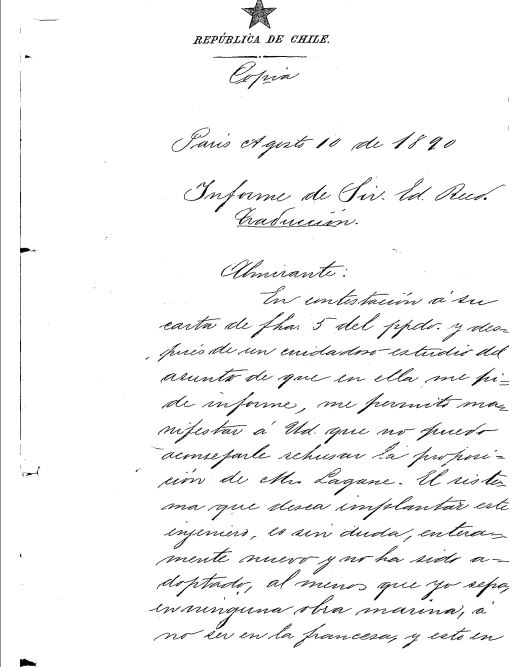 REPÚBLICA DE CHILE.
Copia
Paris Agosto 10 de 1890
Informe de Sir. Ed. Reed.
Traducción.
Almirante:
En contestación á su
carta de fha. 5 del ppdo. y des-
pués de un cuidadoso estudio del
asunto de que en ella me pi-
de informe, me permito ma-
nifestar á Ud. que no puedo
aconsejarle rehusar la proposi-
ción de Mr. Lagane. El siste-
ma que desea implantar este
ingeniero, es sin duda, entera-
mente nuevo y no ha sido a-
doptado, al menos que yo sepa,
en ninguna obra marina, á
no ser en la francesa, y esto en